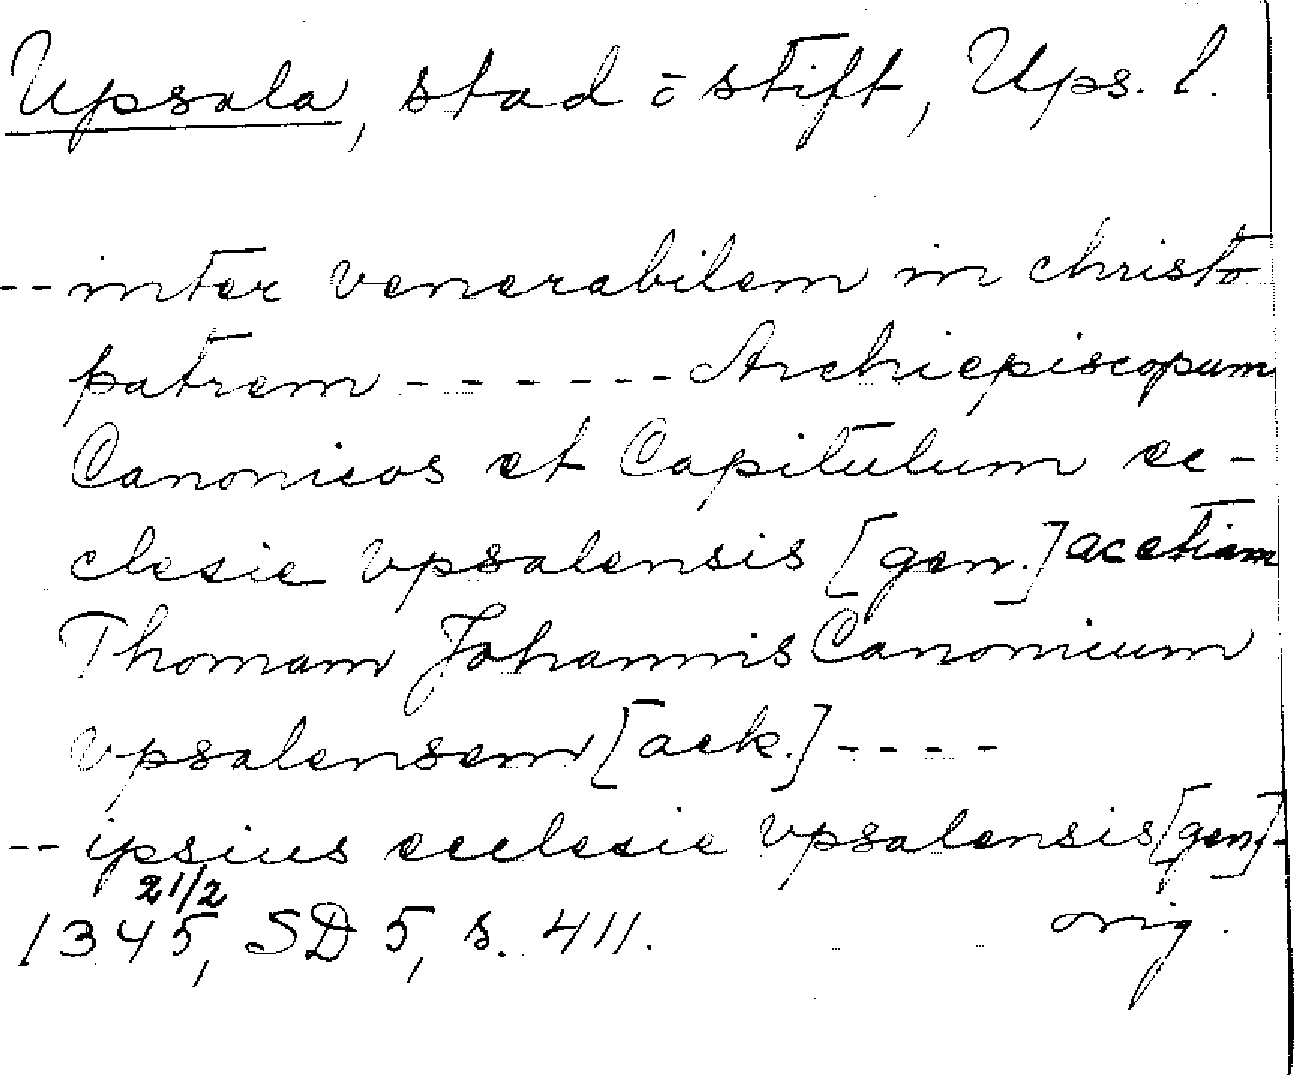 Upsala, stad o stift, Ups. l.
-- inter venerabilem in christo
patrem ------- Archiepiscopum
Canonicos et Capitulum ec-
clesie vpsalensis [gen.] acetiam
Thomam Johannis Canonicum
vpsalensem [ack.] ----
-- ipsius ecclesie vpsalensis [gen.] -
21/2
1345, SD 5, s. 411. orig.